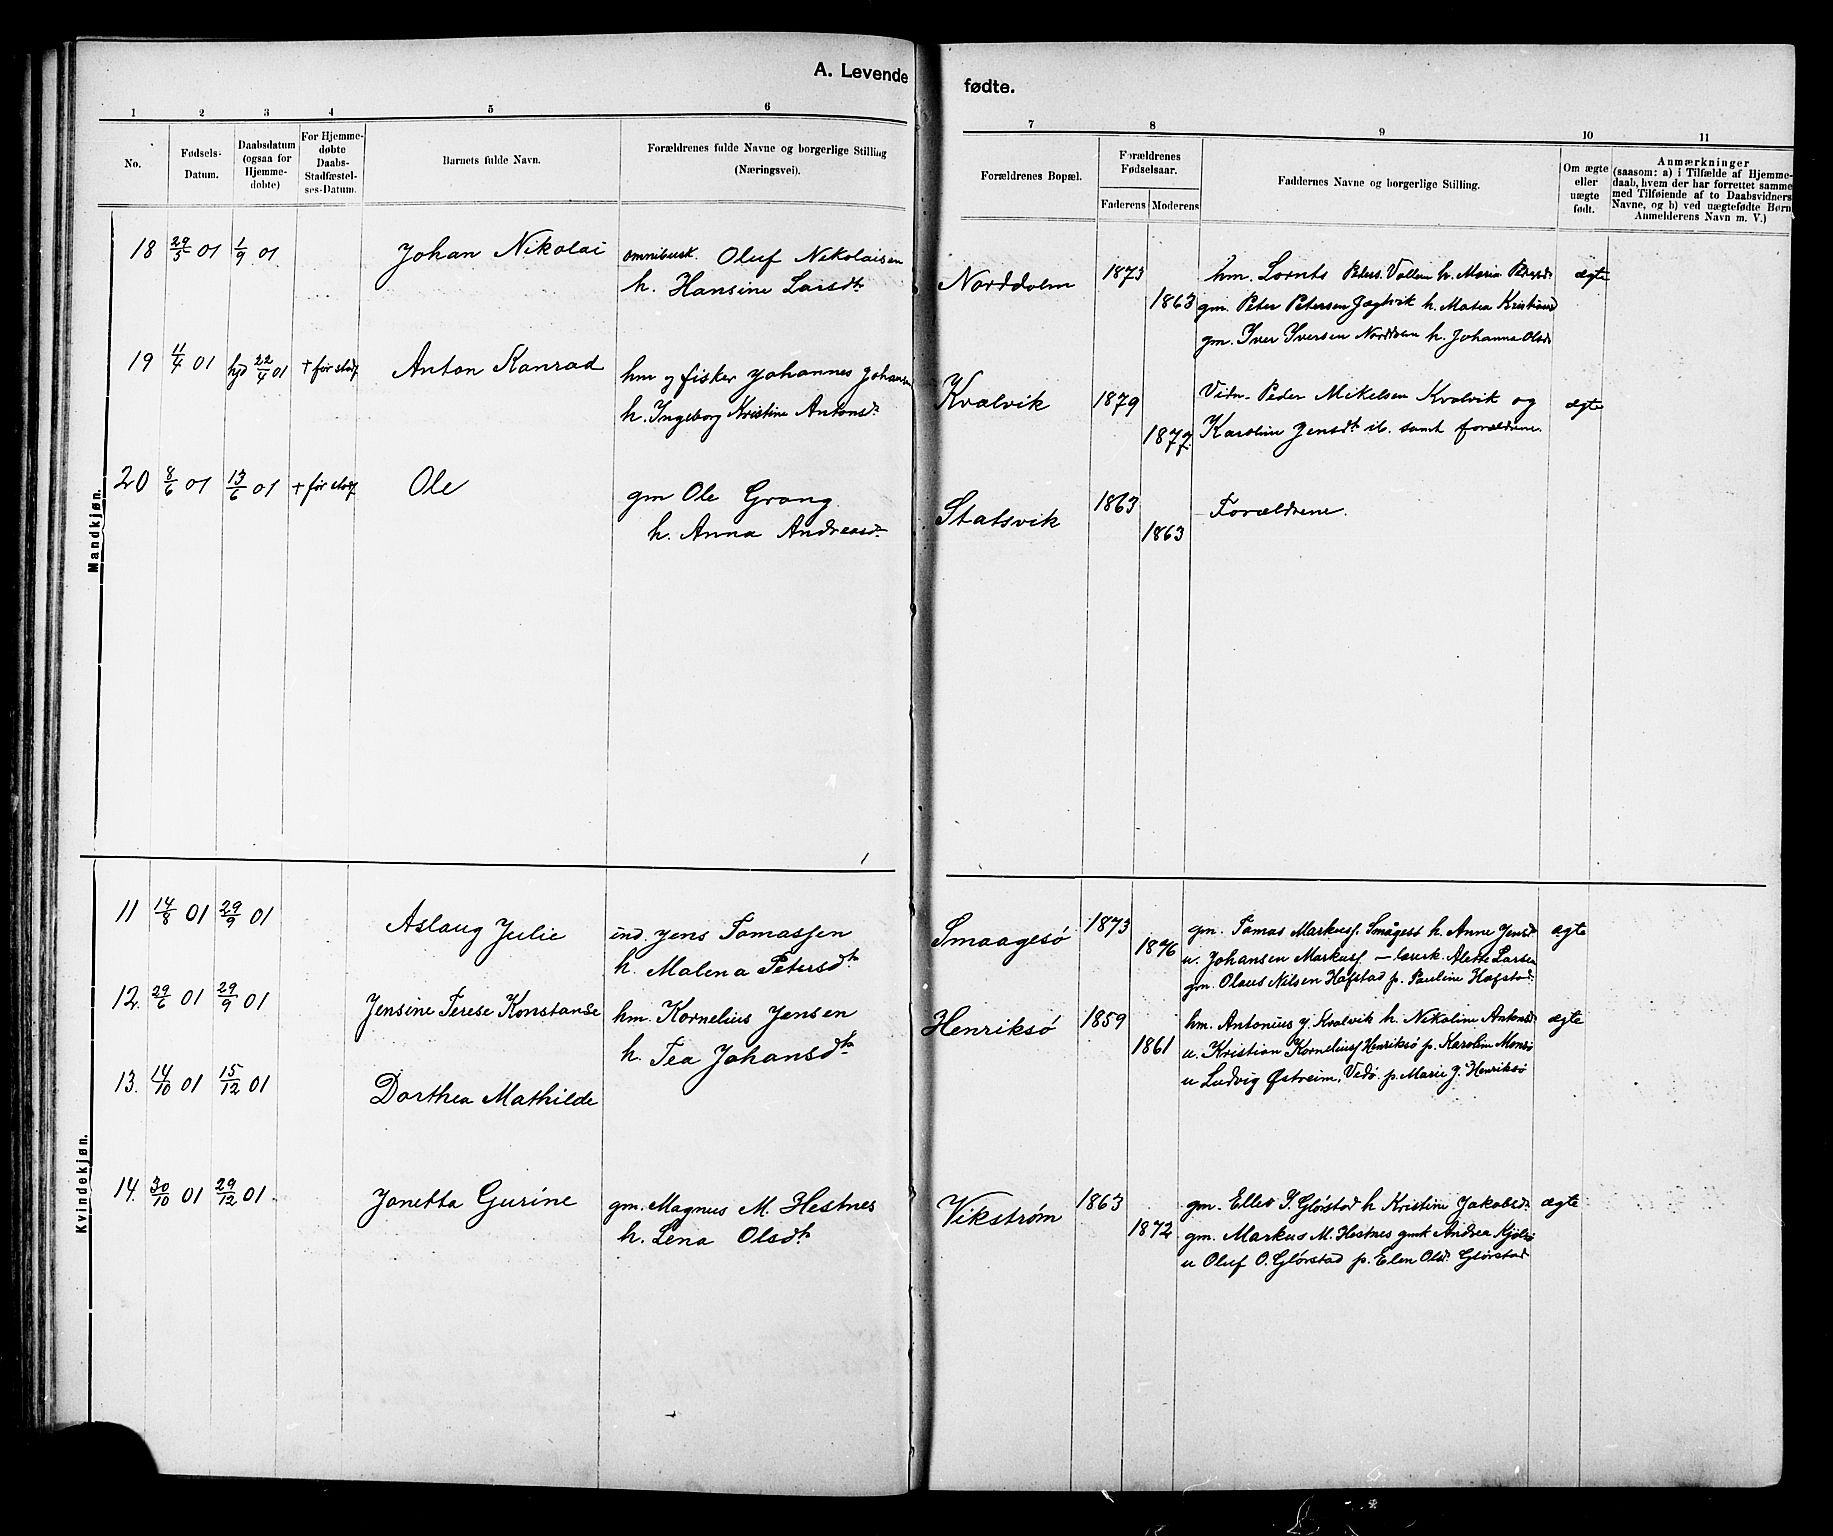 A. Levende fødte.
1 2 3 4 5 6 7 8 9 10 11
No.
Fødsels-Datum.
Daabsdatum (ogsaa for Hjemme-døbte)
For Hjemme-døbte Daabs-Stadfæstel-ses-Datum.
Barnets fulde Navn.
Forældrenes fulde Navne og borgerlige Stilling (Næringsvei).
Forældrenes Bopæl.
Forældrenes Fødselsaar.
Faderens Moderens
Faddernes Navne og borgerlige Stilling.
Om ægte eller uægte født.
Anmærkninger
(saasom: a) i Tilfælde af Hjemme-
daab, hvem der har forrettet samme
med Tilføiende af to Daabsvidners
Navne, og b) ved uægtefødte Børn
Anmelderens Navn m. V.)
Mandkjøn.
18 29/5 01 1/9 01 Johan Nikolai omnibusk. Oluf Nikolaisen
h. Hansine Larsdtr
Norddolm 1873 1863 hm. Lornts Peters. Vollen h. Maria Petersd
gm. Peter Petersen Jægtvik h. Matea Kristians
gm. Iver Iversen Norddolm h. Johanna Olsd
ægte
19 11/4 01 hjd 22/4 01 + før stadf Anton Konrad hm og fisker Johannes Johansen
h. Ingeborg Kristine Antonsdr
Kvalvik 1879 1877 Vidn. Peder Mikelsen Kvalvik og
Karoline Jensdtr ib. samt forældrene.
ægte
20 8/6 01 13/6 01 + før stadf Ole gm Ole Grong
h. Anna Andreasdr
Statsvik 1863 1863 Forældrene.
Kvindekjøn.
11 14/8 01 29/9 01 Aslaug Julie ind. Jens Tomassen
h. Malena Petersdtr
Smaagesø 1873 1876 gm. Tomas Markuss. Smågesø h. Anne Jensdr
u. Johansen Markuss — lærerk. Alette Larsen
gm. Olaus Nilsen Hafstad p. Pauline Hafstad
ægte
12. 29/6 01 29/9 01 Jensine Terese Konstanse hm. Kornelius Jensen
h. Tea Johansdtr
Henriksø 1859 1861 hm. Antonius J. Kvalvik h. Nikoline Antonsd
u. Kristian Korneliuss Henriksø p. Karoline Monsø
u Ludvig Østreim, Vedø p. Marie J. Henriksø
ægte
13. 14/10 01 15/12 01 Dorthea Mathilde
14. 30/10 01 29/12 01 Jonetta Gurine gm. Magnus M. Hestnes
h. Lena Olsdtr
Vikstrøm 1863 1872 gm. Ellev J. Glørstad h Kristine Jakobsdr
gm. Markus M. Hestnes gmk Andrea Kjølsø
u Oluf O. Glørstad p. Elen Olsd. Glørstad
ægte